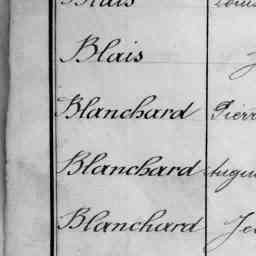 Blais
Blais
Blanchard Pierr
Blanchard Augu
Blanchard Je